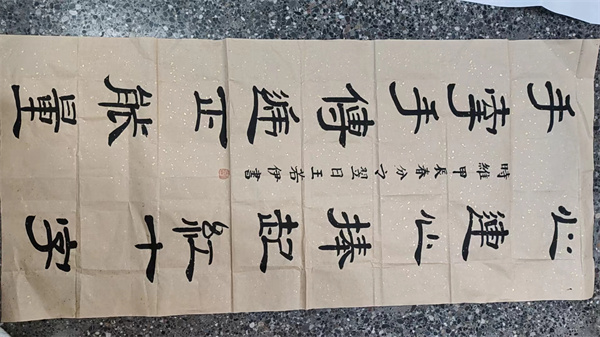 手牽手傳遞正能量
時維甲辰春分之翌日王若伊書
心連心捧起紅十字